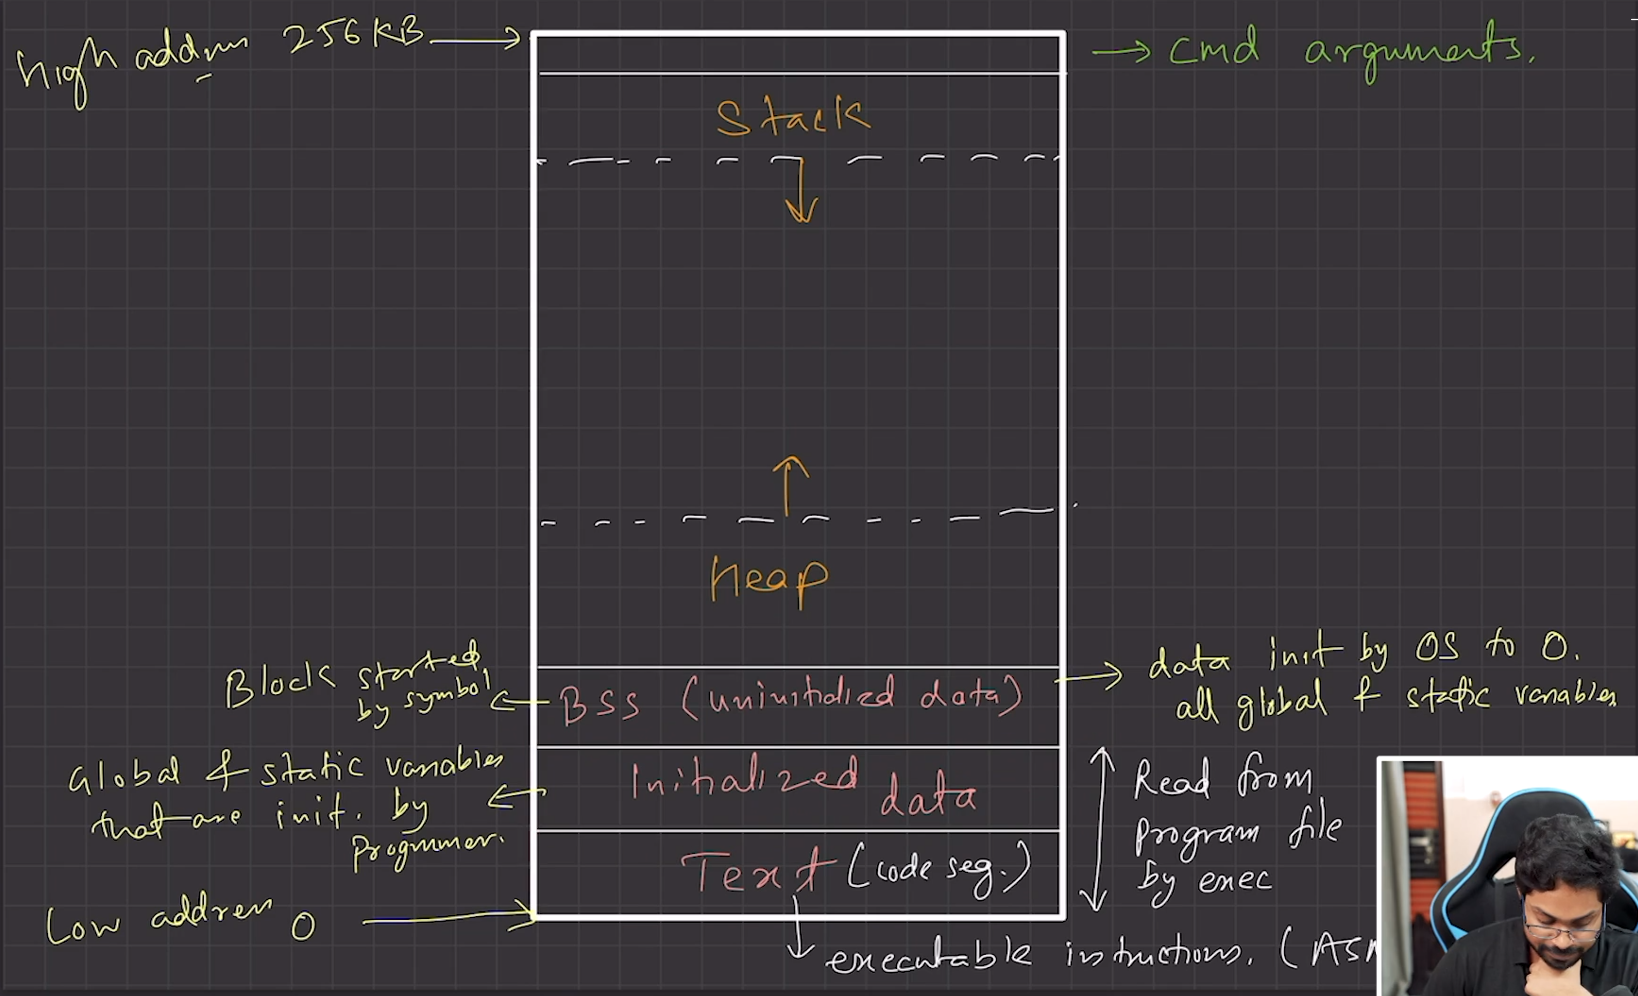 High address 256KB
→ cmd arguments.
Stack
Heap
Block started
by symbol
BSS (uninitialized data)
data init by OS to 0.
all global & static variables
Global & static variables
that are init. by
Programmer.
Initialized
data
Read from
program file
by exec
Text (code seg.)
Low address 0
executable instructions. (ASM